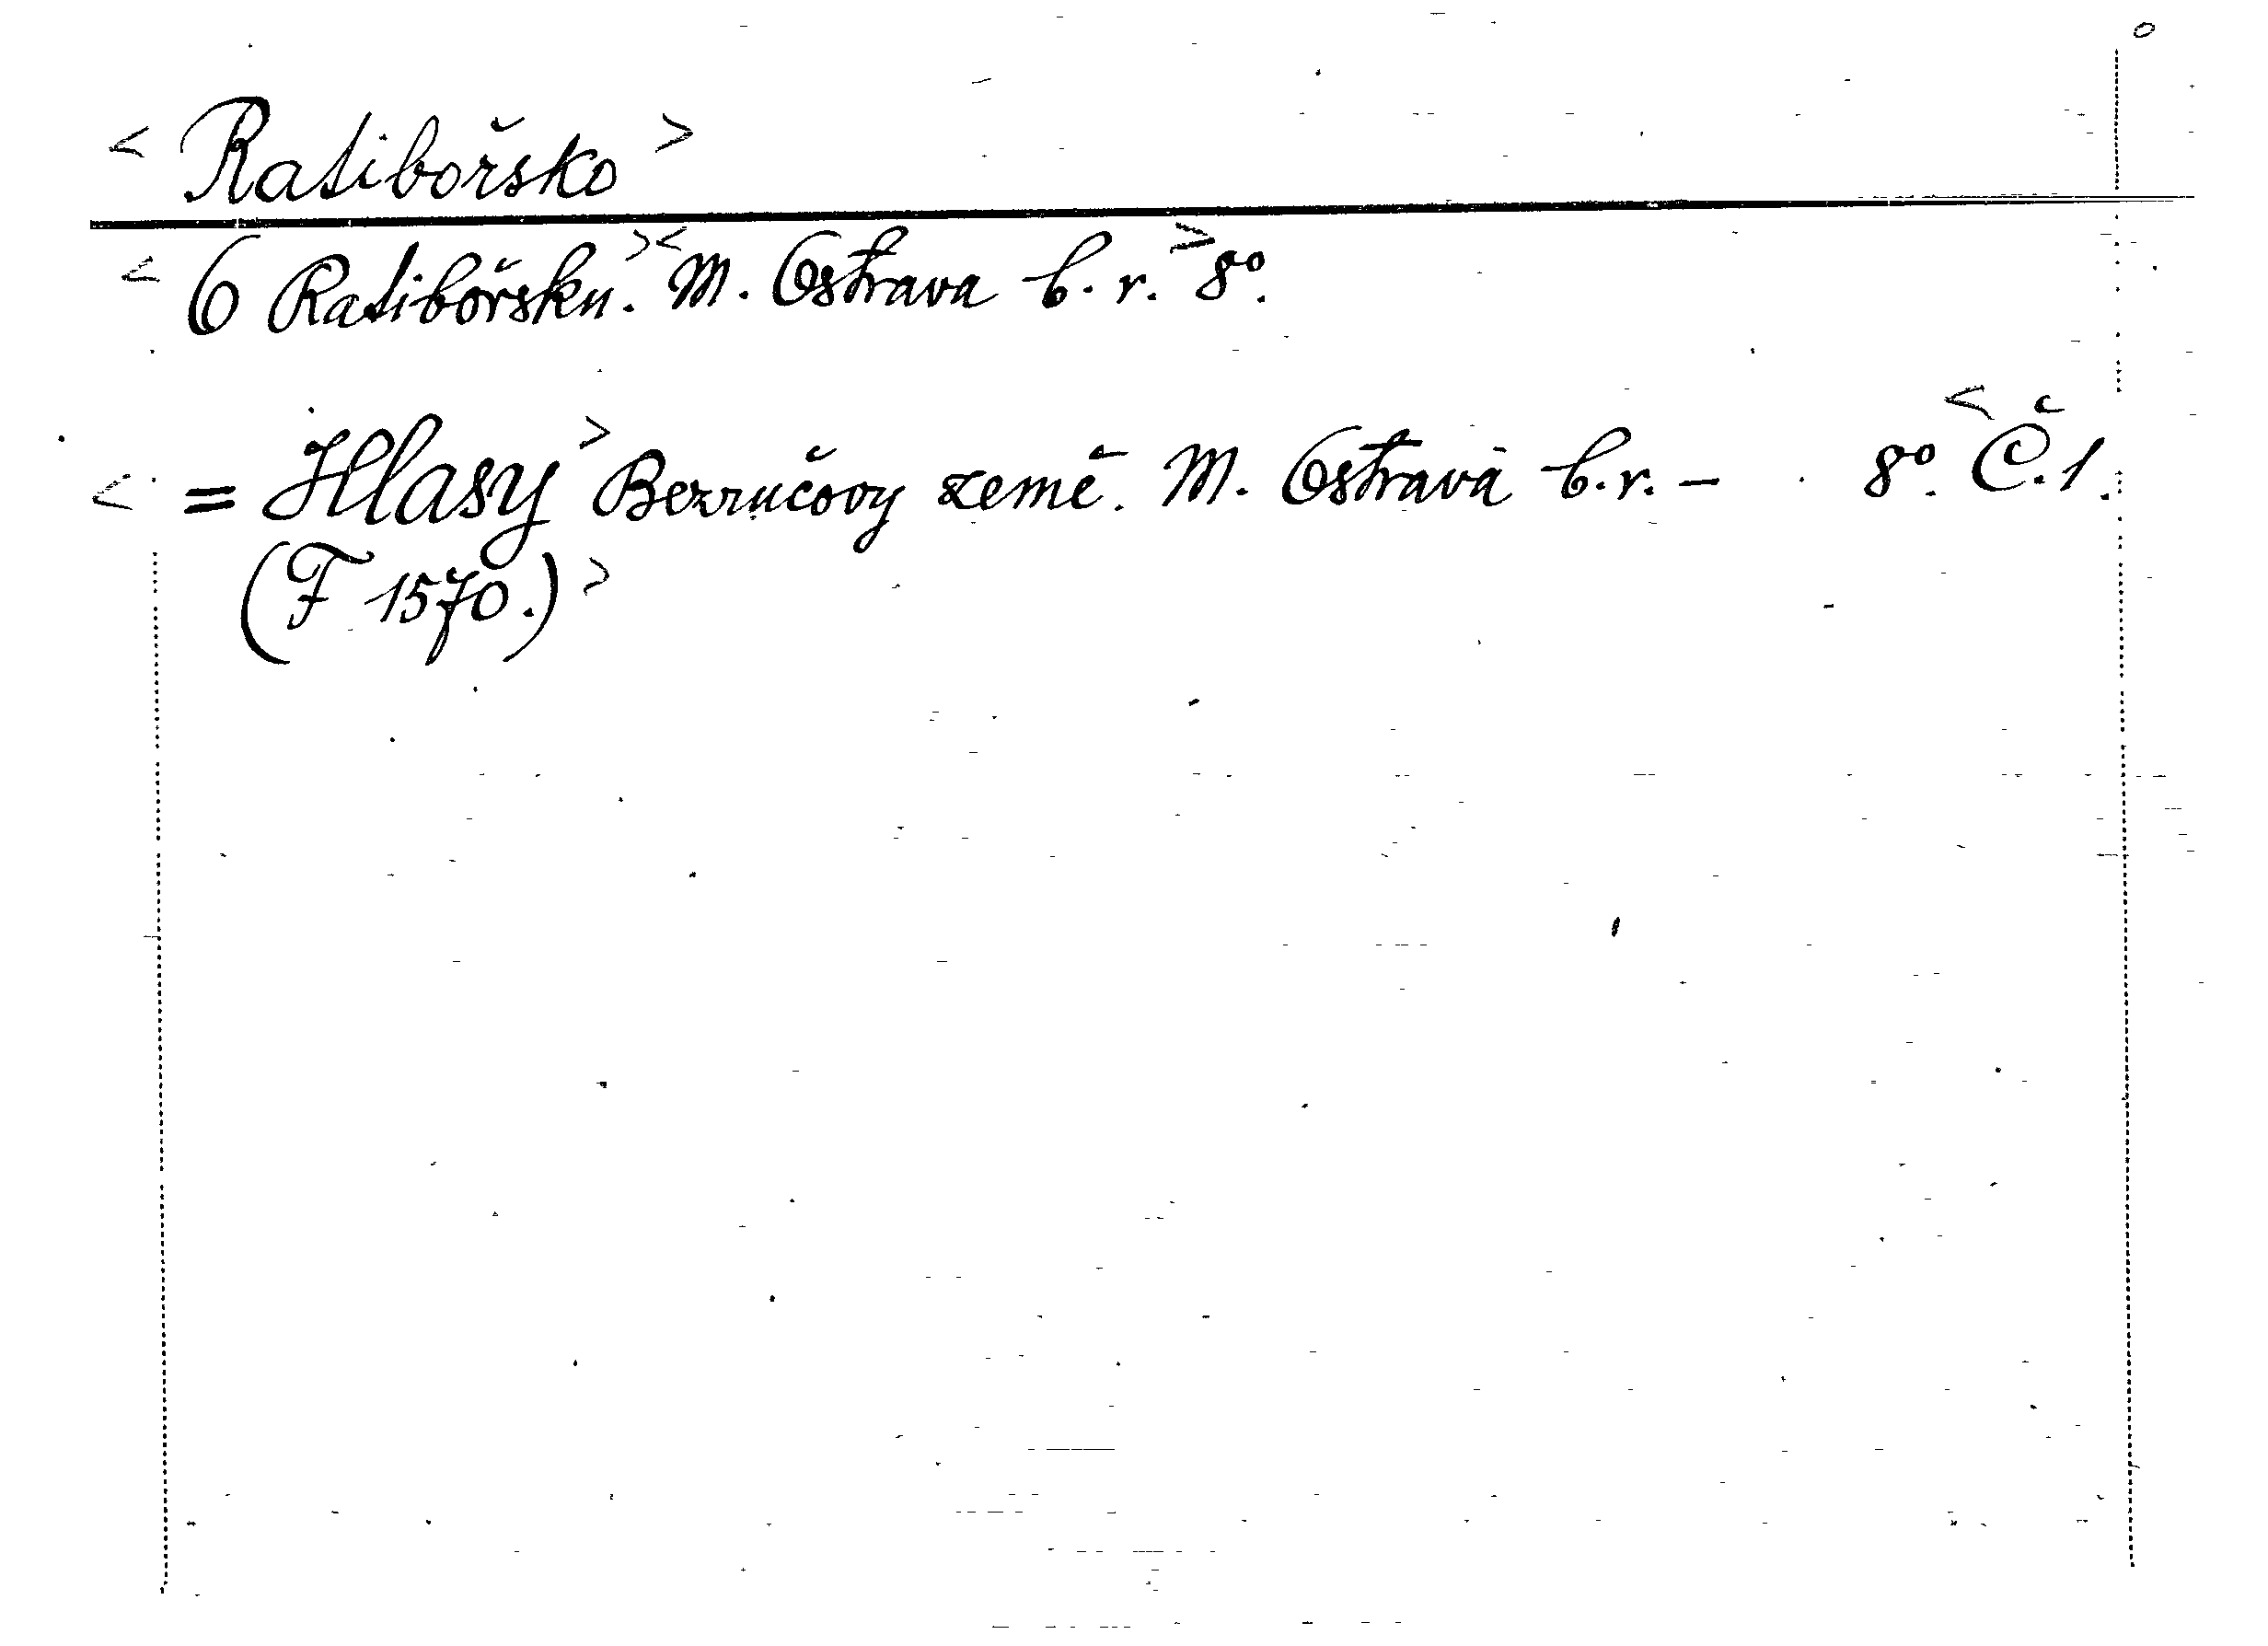 < Ratibořsko >
< O Ratibořsku. > < M. Ostrava b. r. > 8º.
< = Hlasy > Bezručovy země. M. Ostrava b. r. - 8º. < Č. 1.
(F 1570.) >